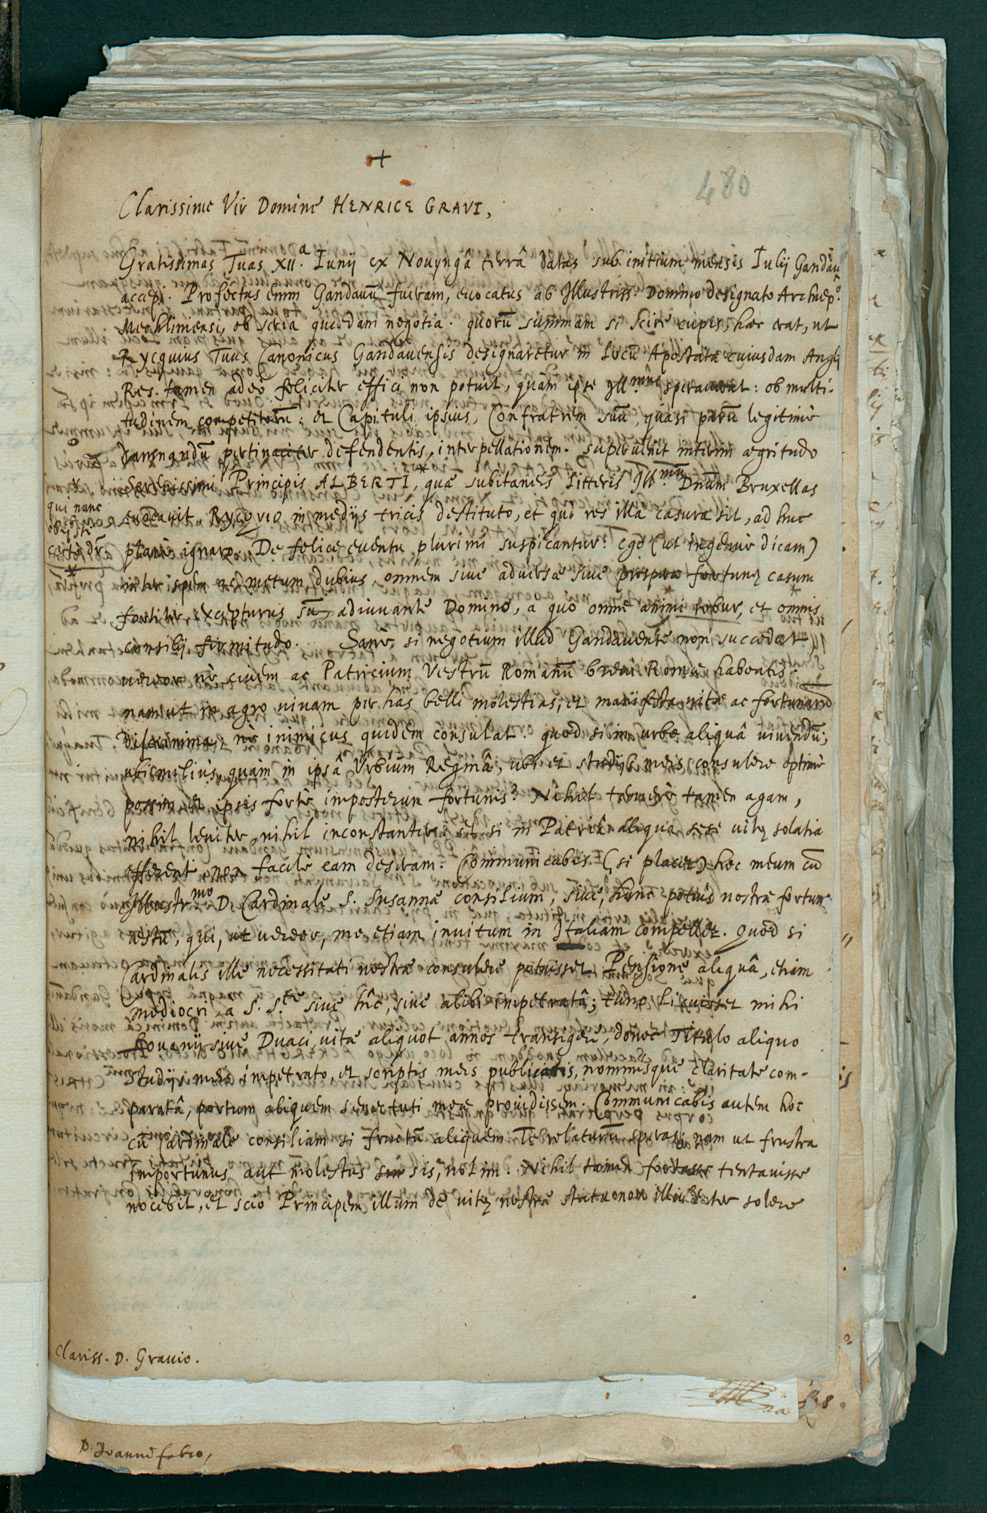 +
480
Clarissime Vir Domine HENRICE GRAVI,
Gratissimas Tuas XII.a Iunij ex Nouyngâ terrâ datas sub initium mensis Iulij Gandaui
accepi. Profectus enim Gandauū fueram, euocatus ab Illustriss. Domino designato Archiep.o
Mechliniensi, ob seria quędam negotia. quorū summam si scire cupis, hæc erat, ut
Rycquius Tuus Canonicus Gandauensis designaretur in locū Apostatæ cuiusdam Angli
Res tamen adeo feliciter effici non potuit, quàm ipse Ill.mus sperauerat: ob multi-
tudinem competitorū: et Capituli ipsius, Confratrem suū, quasi parū legitimè
damnandū pertinaciter defendentis, interpellationem. superuenit interim ægritudo
Serenissimi Principis ALBERTI, quæ subitaneis litteris Ill.mum Dnum Bruxellas
euocauit, Rycquio in medijs tricis destituto, et quò res illa casura sit, adhuc
qui nunc
obijsse
certò dr̄.
planè ignaro. De felici euentu plurimi suspicantur: ego (ut ingenuè dicam)
inter spem ac metum dubius, omnem siue aduersæ siue prosperæ fortunę casum
fortiter excepturus sū adiuuante Domino, a quo omne animi robur, et omnis
consilij firmitudo. Sanè, si negotium illud Gandauense non succedat,
uereor nè ciuem ac Patricium Vestrū Romanū breui Romæ habeatis
nam ut in agro uiuam per has belli molestias, et manifesta uitæ ac fortunarū
discrimina, ne inimicus quidem consulat. quod si in urbe aliquâ uiuendū,
ubi melius, quàm in ipsâ Vrbium Reginâ, ubi et studijs meis consulere optimè
possim et ipsis fortè imposterum fortunis? Nihil temerè tamen agam,
nihil leuiter, nihil inconstanter: et si in Patriâ aliqua sese uitę solatia
offerent, non facilè eam deseram. Communicabis (si placet) hoc meum cū
Illustr.mo D. Cardinale S. Susannæ consilium, siue, hunc potius nostræ fortunæ
æstū, qui, ut uereor, me etiam inuitum in Italiam compellet. Quod si
Cardinalis ille necessitati nostræ consulere potuisset Pensione aliquâ, etiam
mediocri, a S. S.te siue hîc, siue alibi impetratâ; tunc liquisset mihi
Louanij siue Duaci, uitæ aliquot annos transigere, donec Titulo aliquo
studijs meis impetrato, et scriptis meis publicatis, nominisque claritate com-
paratâ, portum aliquem senectuti meæ prouidissem. Communicabis autem hoc
cū Cardinale consilium si fructū aliquem Te relaturū speras: nam ut frustra
importunus aut molestus sis, nolim. Nihil tamen fortasse tentauisse
nocebit, et scio Principem illum de uitę nostræ statu non illibenter solere
Clariss. D. Grauio.
D. Ioanni Fabro,